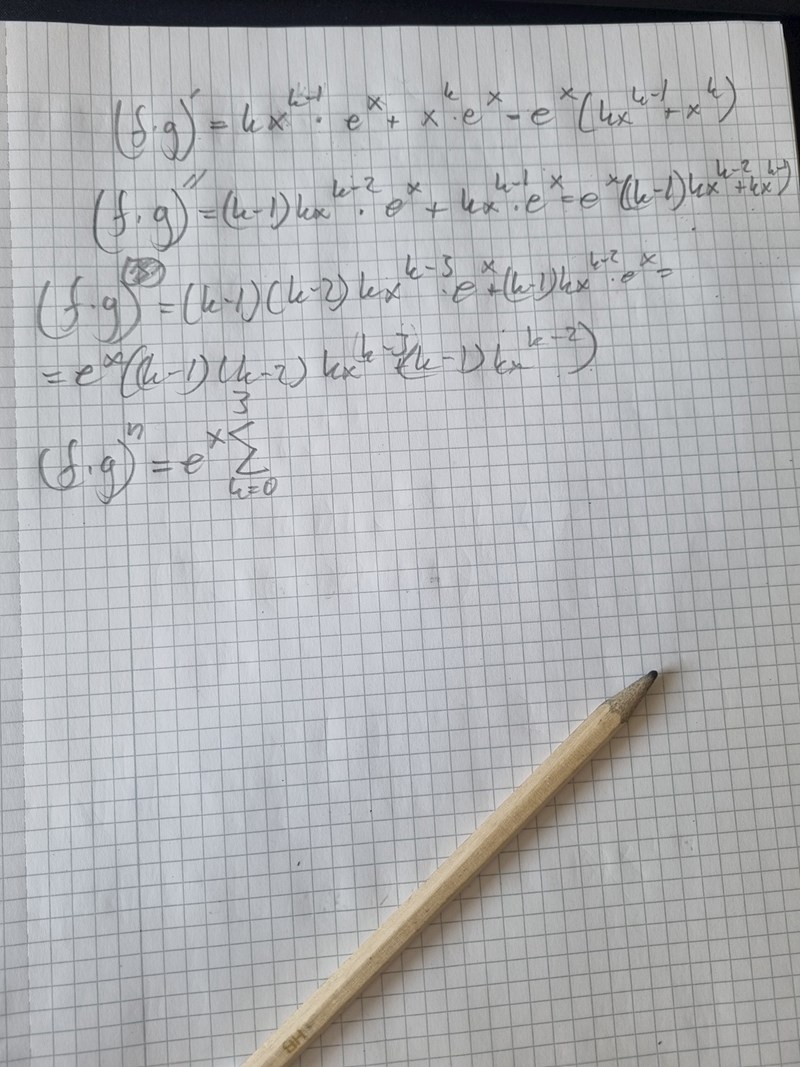 (f·g)' = kx^{k-1} · e^x + x^k · e^x = e^x(kx^{k-1} + x^k)
(f·g)'' = (k-1)kx^{k-2} · e^x + kx^{k-1} · e^x = e^x((k-1)kx^{k-2} + kx^{k-1})
(f·g) = (k-1)(k-2)kx^{k-3} · e^x + (k-1)kx^{k-2} · e^x =
= e^x((k-1)(k-2)kx^{k-3} + (k-1)kx^{k-2})
(f·g)^n = e^x \sum_{k=0}^{3}
HB